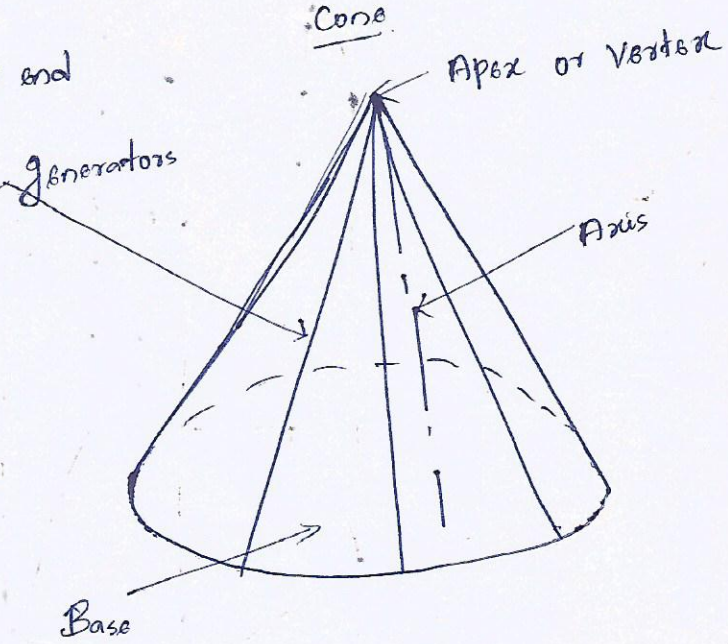 Cone
end
Apex or Vertex
generators
Axis
Base